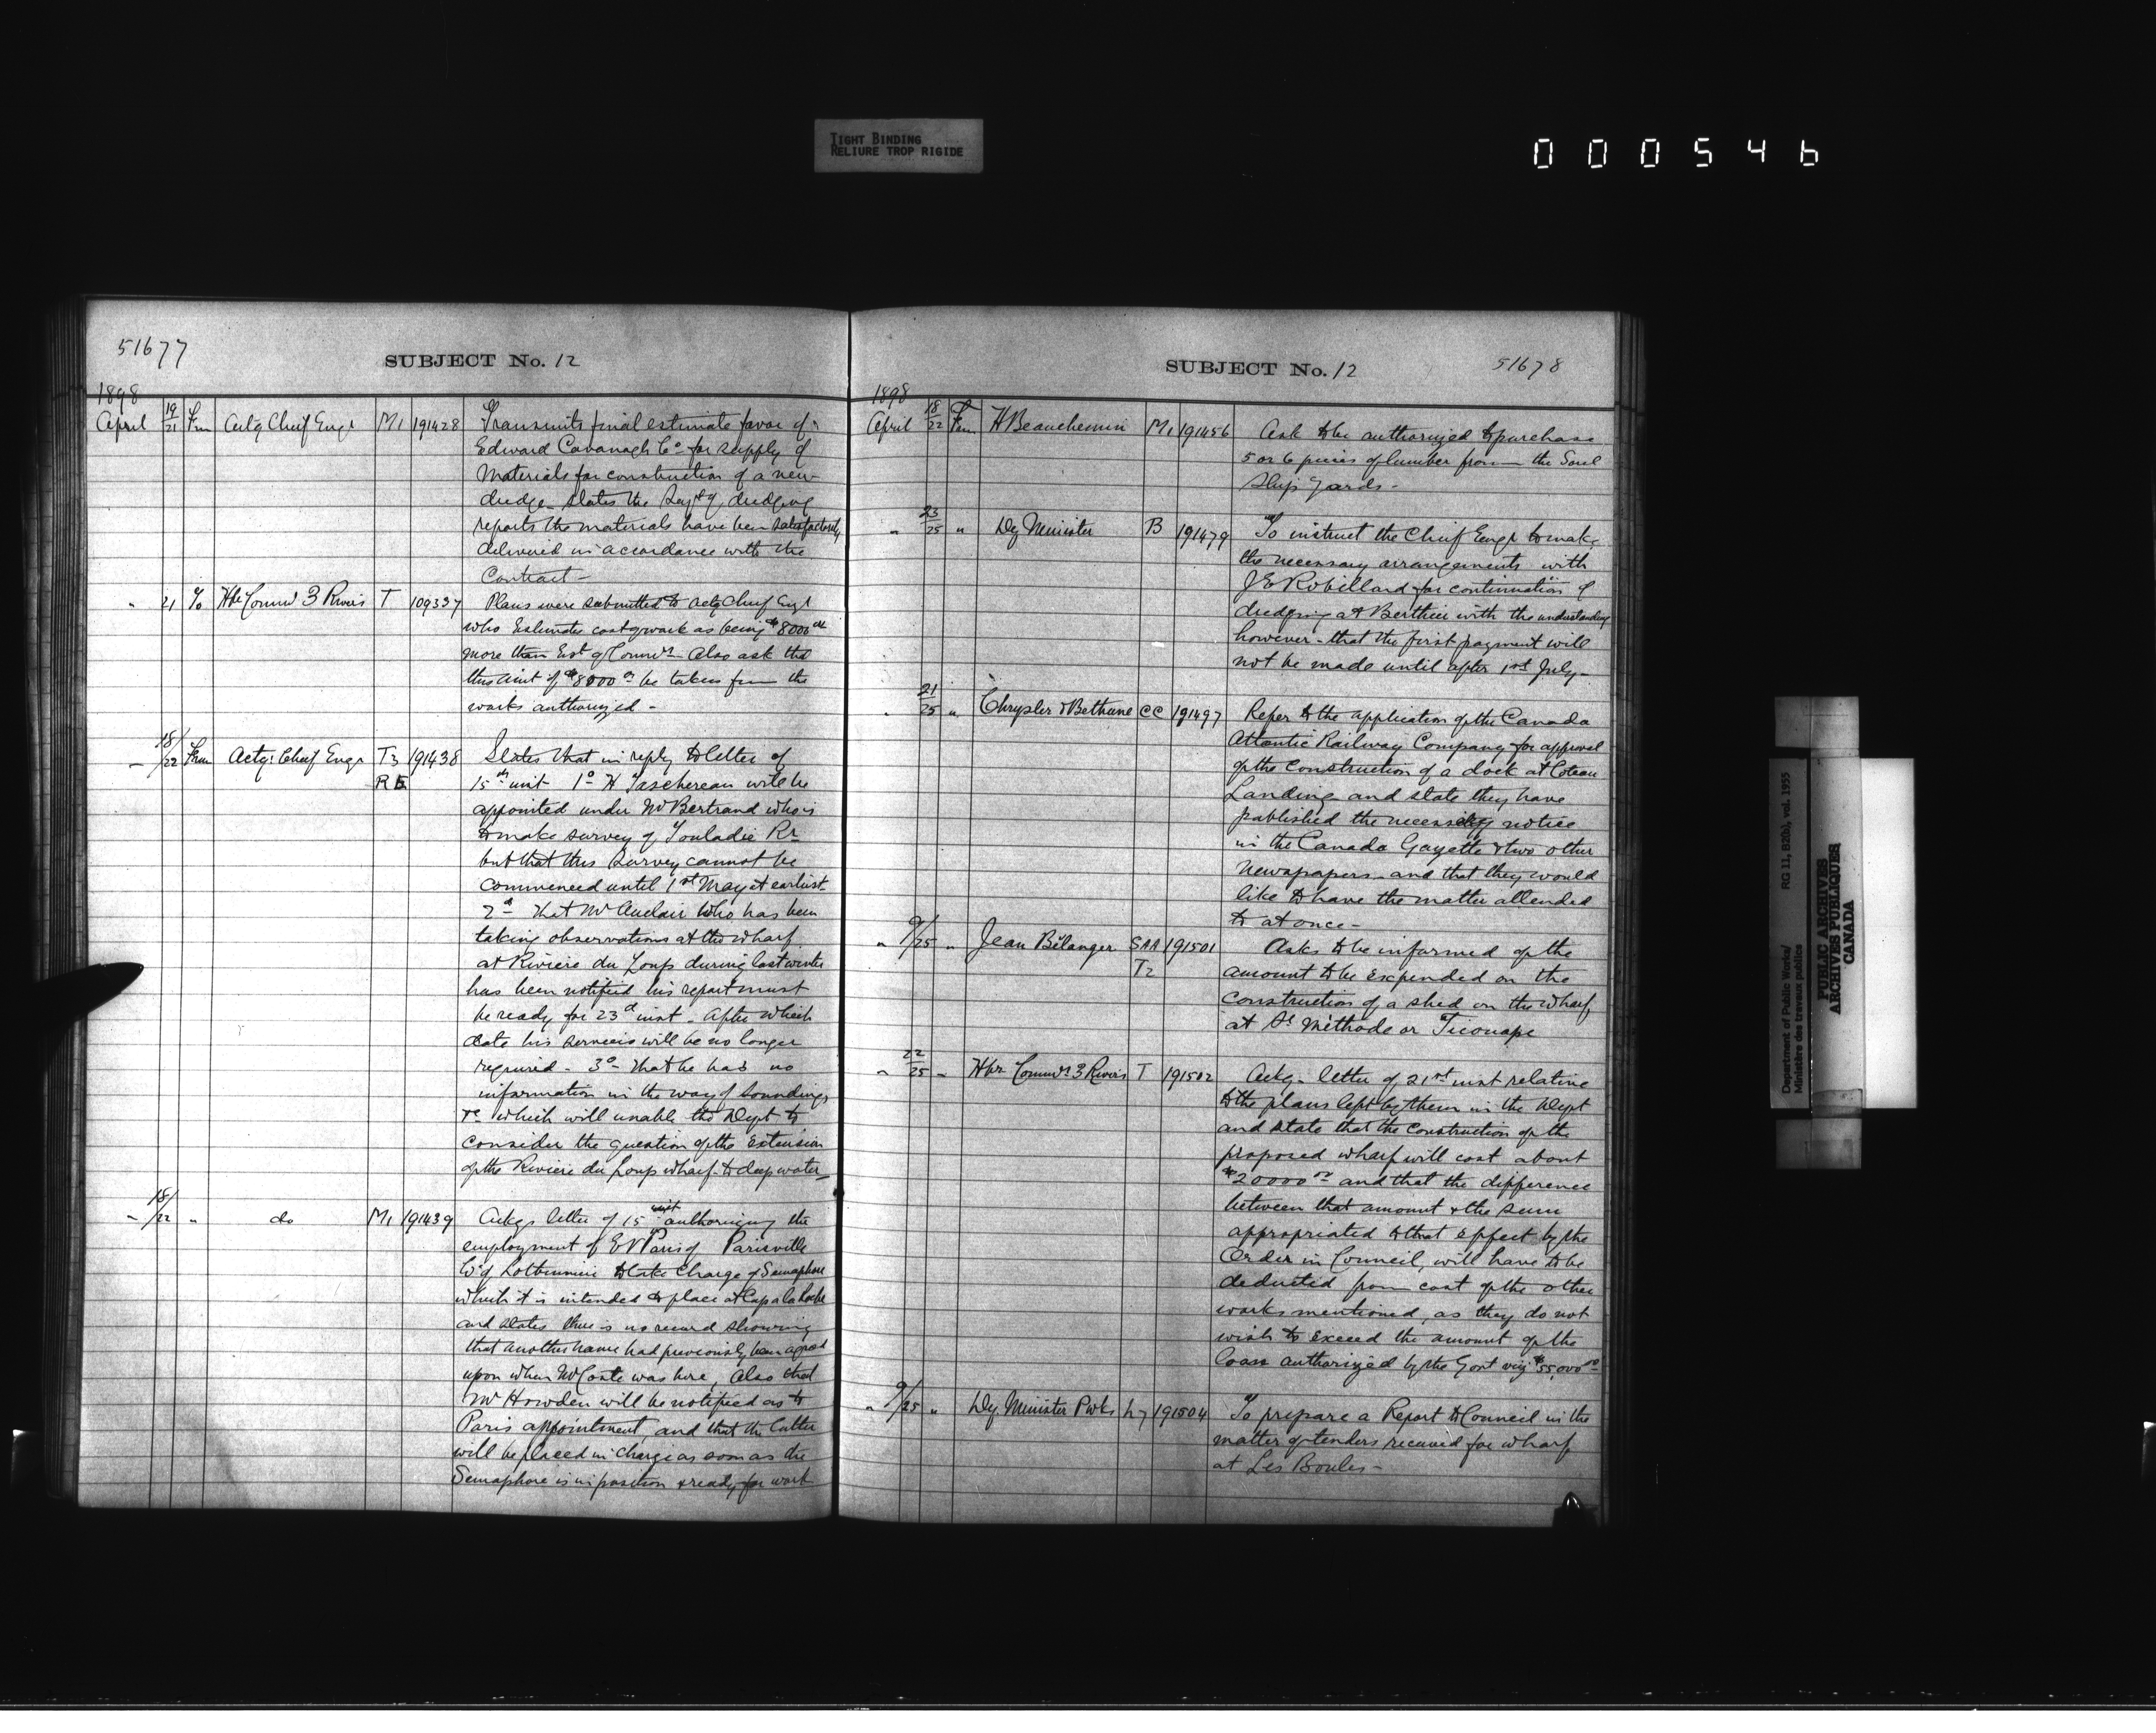 TIGHT BINDING
RELIURE TROP RIGIDE
000546
51677
SUBJECT No. 12
1898
April 19/21 Fm Actg Chief Engr M1 191428 Transmits final estimate favor of
Edward Cavanagh Co for supply of
Materials for construction of a new
dredge states the Supt of dredging
reports the materials have been satisfactorily
delivered in accordance with the
Contract -
" 21 To Hbr Commrs 3 Rivers T 109337 Plans were submitted to actg Chief Engr
who Estimates cost of work as being $8000 00
more than Est of Commrs - Also ask that
this amt of $8000 00 be taken from the
works authorized -
" 18/22 From Actg. Chief Engr T3 191438 States that in reply to letter of
RE 15th inst 1o H Taschereau will be
appointed under Mr Bertrand who is
to make survey of Touladie Rr
but that this Survey cannot be
commenced until 1st May at earliest
2d That Mr Auclair who has been
taking observations at the wharf
at Riviere du Loup during last winter
has been notified his report must
be ready for 23d inst - After which
date his services will be no longer
required - 3o That he has no
information in the way of soundings
&c which will enable the Dept to
consider the question of the Extension
of the Riviere du Loup wharf to deep water -
" 18/22 " do M1 191439 Ackgs letter of 15 inst authorizing the
employment of E V Paris of Parisville
Co of Lotbiniere to take charge of Semaphore
which it is intended to place at Cap a la Roche
and states there is no record showing
that another name had previously been agreed
upon when Mr Coste was here, Also that
Mr Howden will be notified as to
Paris appointment, and that the latter
will be placed in charge as soon as the
Semaphore is in position & ready for work
SUBJECT No. 12
51678
1898
April 18/22 From H Beauchemin M1 191456 Ask to be authorized to purchase
5 or 6 pieces of lumber from the Sorel
Ship Yards -
" 23/25 " Dy Minister B 191479 To instruct the Chief Engr to make
the necessary arrangements with
J E Robillard for continuation of
dredging at Berthier with the understanding
however - that the first payment will
not be made until after 1st July -
" 21/25 " Chrysler & Bethune CC 191497 Refer to the application of the Canada
Atlantic Railway Company for approval
of the construction of a dock at Coteau
Landing and state they have
published the necessary notice
in the Canada Gazette & two other
Newspapers - and that they would
like to have the matter attended
to at once -
" 9/25 " Jean Bélanger SAA 191501 Asks to be informed of the
T2 amount to be expended on the
construction of a shed on the wharf
at St Méthode or Ticouape
" 22/25 " Hbr Commrs 3 Rivers T 191502 Ackg. letter of 21st inst relative
to the plans left by them in the Dept
and state that the construction of the
proposed wharf will cost about
$20000 00 and that the difference
between that amount & the sum
appropriated to that effect by the
Order in Council, will have to be
deducted from cost of the other
works mentioned, as they do not
wish to exceed the amount of the
loan authorized by the Govt viz $55,000 00
" 9/25 " Dy. Minister Pwks L7 191504 To prepare a Report to Council in the
matter of tenders received for wharf
at Les Boules -
Department of Public Works/ RG 11, B2(b), vol. 1955
Ministère des travaux publics
PUBLIC ARCHIVES
ARCHIVES PUBLIQUES
CANADA